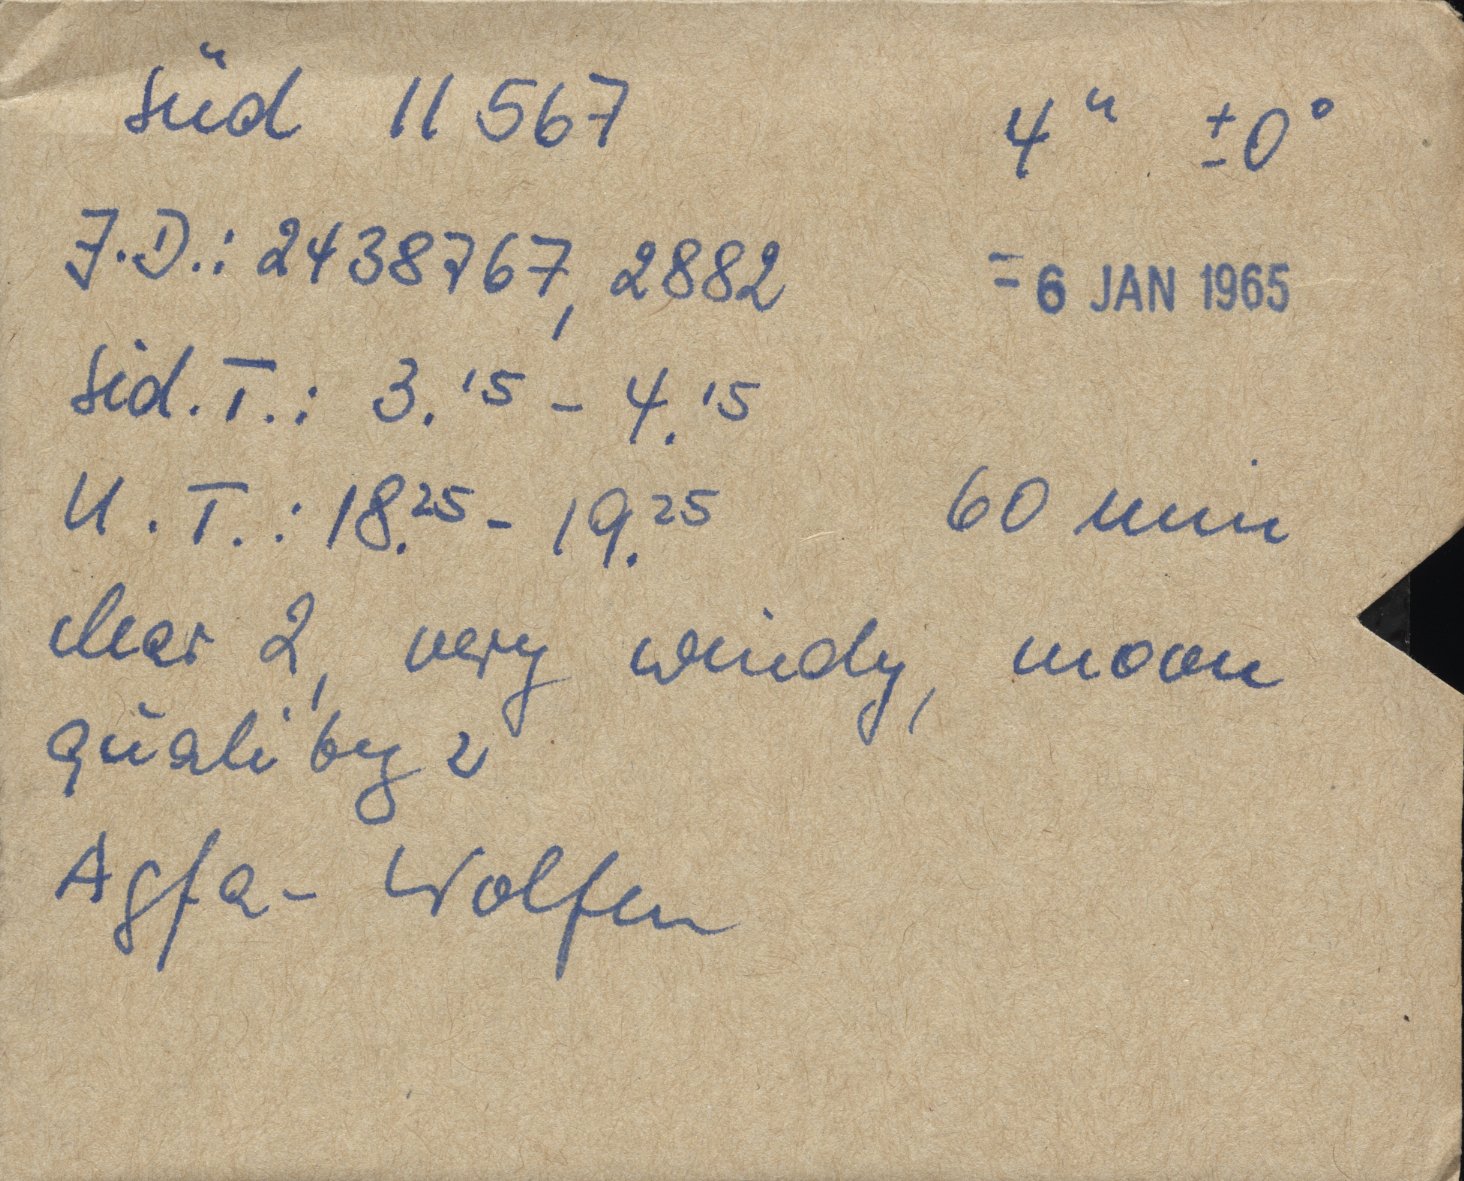 Süd 11567 4ʰ ±0°
J.D.: 2438767,2882 -6 JAN 1965
Sid.T.: 3.¹⁵ - 4.¹⁵
U.T.: 18.²⁵ - 19.²⁵ 60 min
clear 2, very windy, moon
quality 2
Agfa-Wolfen